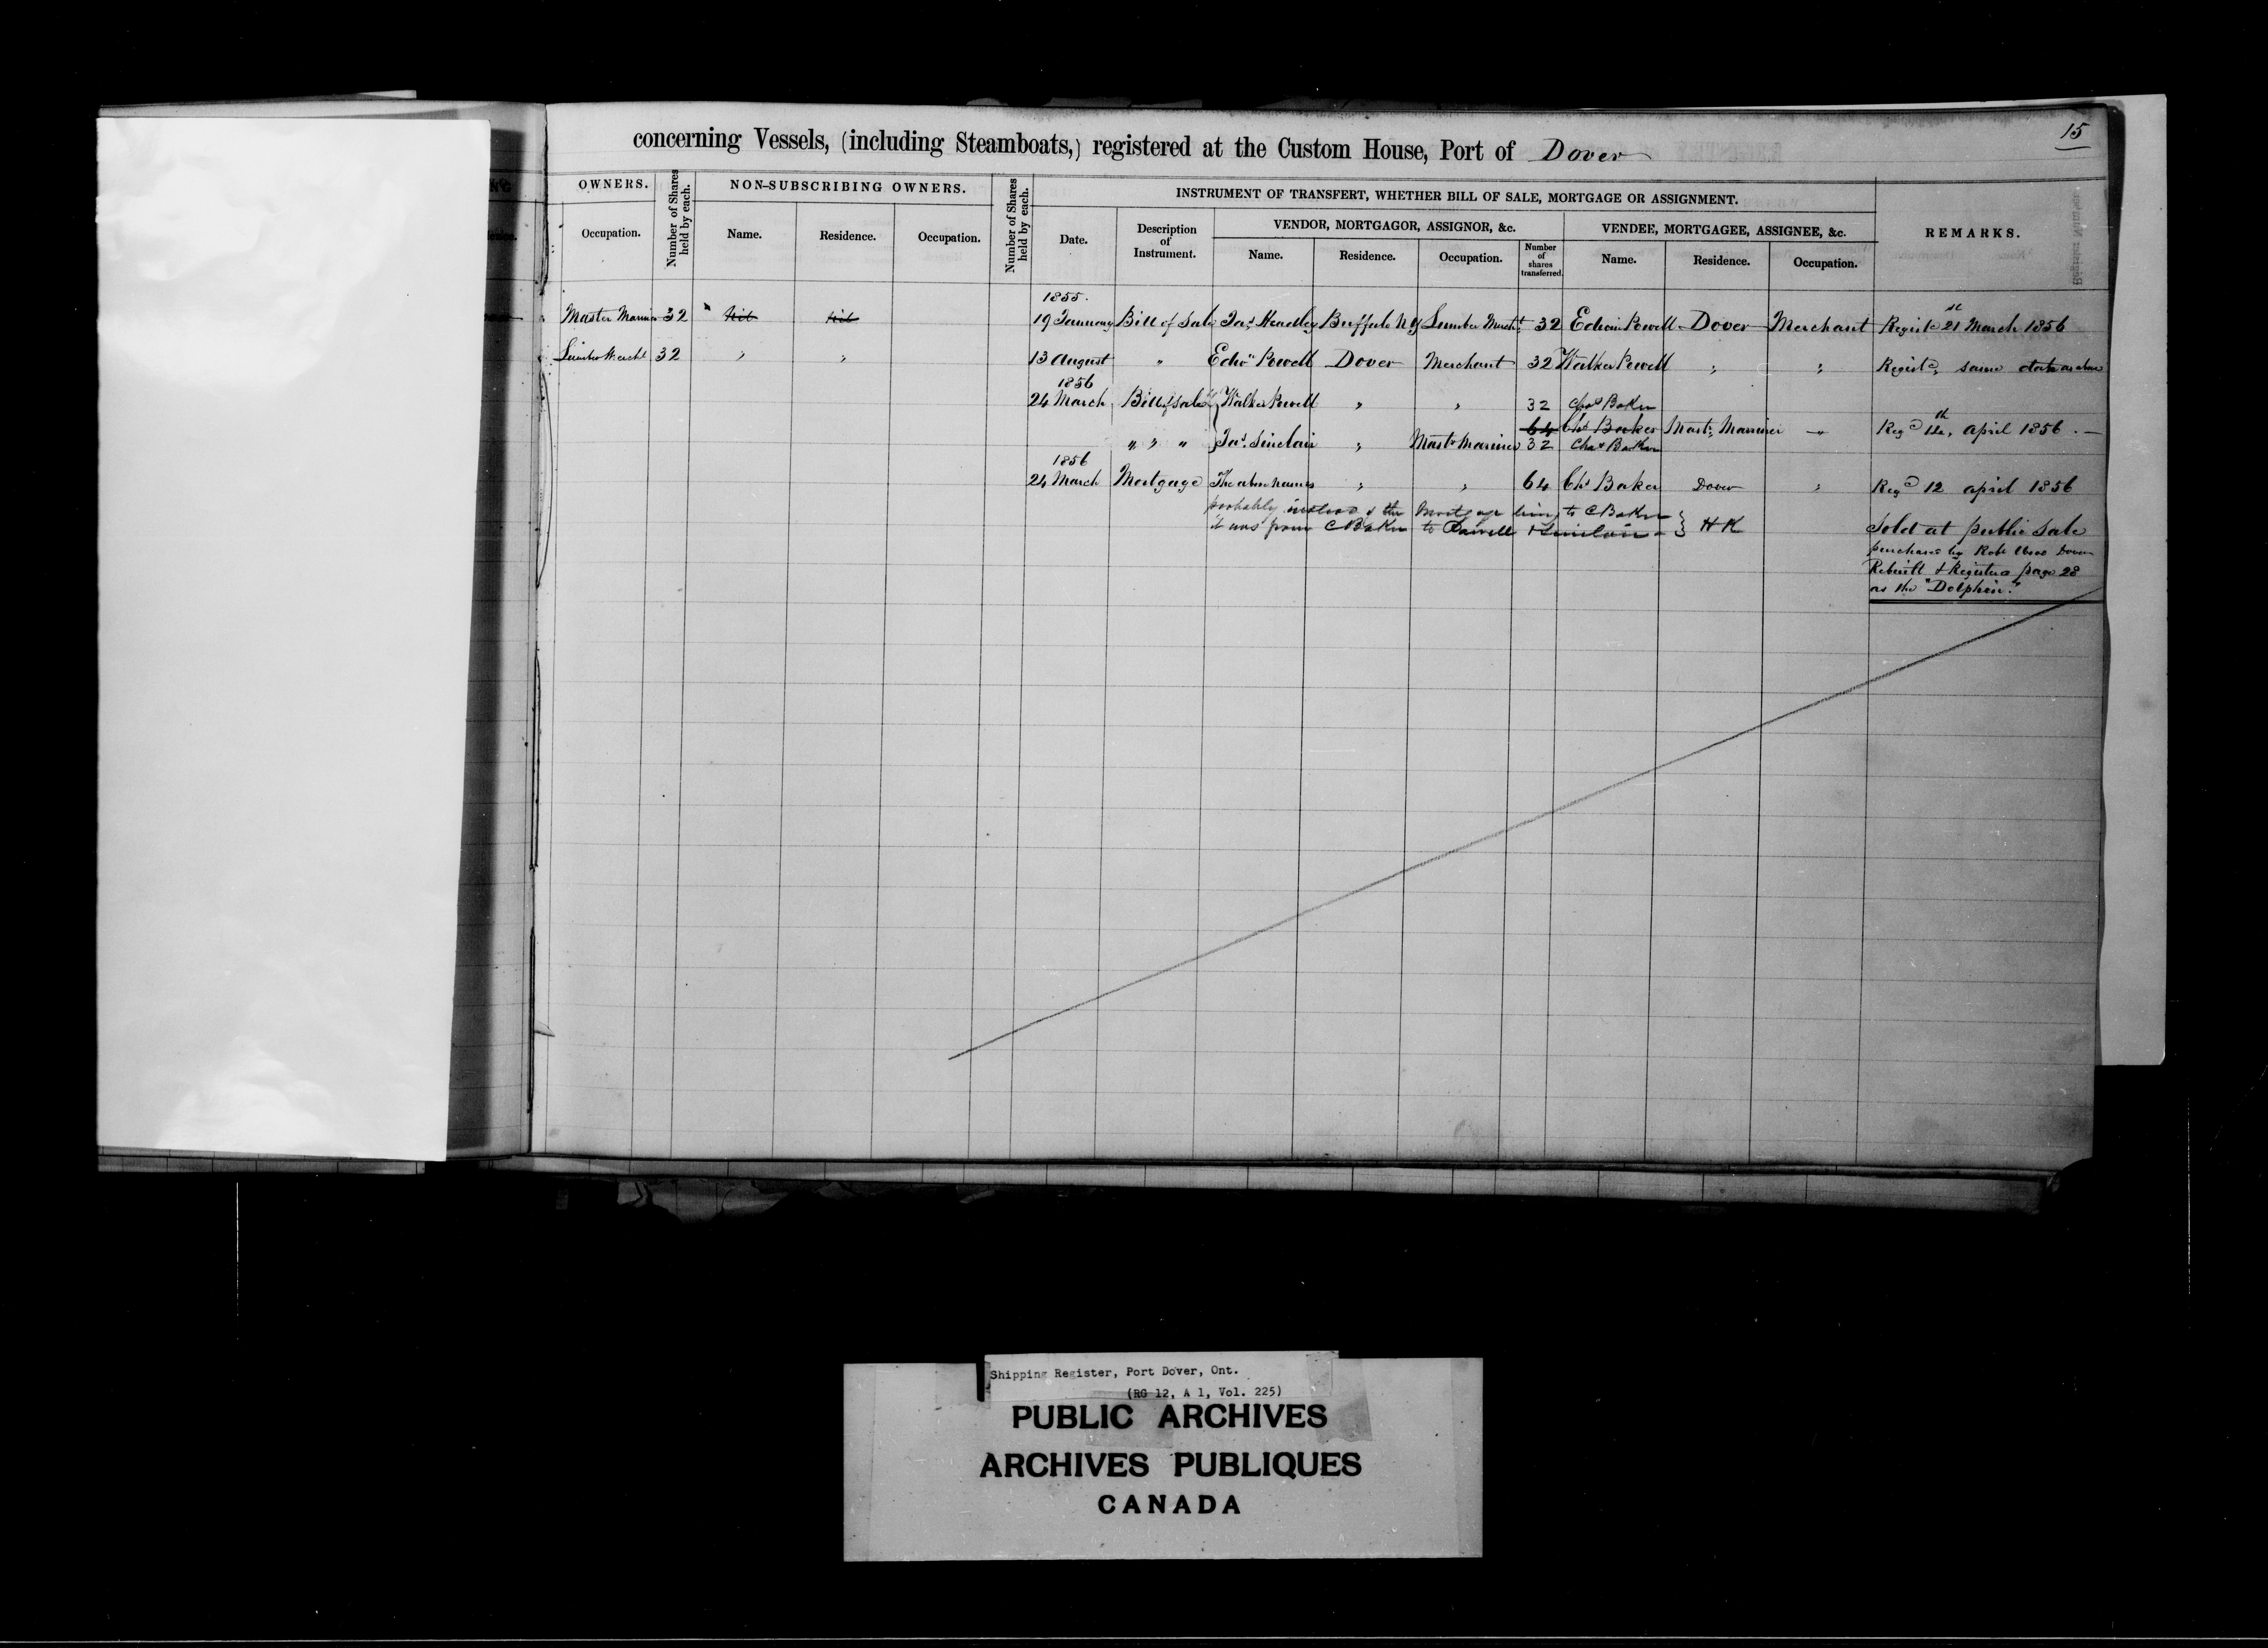 15
concerning Vessels, (including Steamboats,) registered at the Custom House, Port of Dover
OWNERS. Number of Shares held by each. NON-SUBSCRIBING OWNERS. Number of Shares held by each. INSTRUMENT OF TRANSFERT, WHETHER BILL OF SALE, MORTGAGE OR ASSIGNMENT. REMARKS.
VENDOR, MORTGAGOR, ASSIGNOR, &c. VENDEE, MORTGAGEE, ASSIGNEE, &c.
Occupation. Name. Residence. Occupation. Date. Description of Instrument. Name. Residence. Occupation. Number of shares transferred. Name. Residence. Occupation.
1855.
Master Marine 32 Nil Nil 19 January Bill of Sale Jas Headley Buffalo N Y Lumber Mercht 32 Edwin Powell Dover Merchant Registd 21st March 1856
Lumber Mercht 32 " " 13 August " Edwn Powell Dover Merchant 32 Walker Powell " " Registd, same date as above
1856
24 March Bill of Sale { Walker Powell " " 32 Chas Baker
64 Chs Baker Mastr Marriner " Regd 12th, April 1856. —
" " " Jas. Sinclair " Mastr Mariner 32 Chas Baker
1856
24 March Mortgage The above names " " 64 Chs Baker Dover " Regd 12 april 1856
probably instead of the Mortgage being to C Baker
it was from C Baker to Powell & Sinclair - } H K
Sold at public sale
purchased by Robt Dover
Rebuilt & Registered page 28
as the "Dolphin."
Shipping Register, Port Dover, Ont.
(RG 12, A 1, Vol. 225)
PUBLIC ARCHIVES
ARCHIVES PUBLIQUES
CANADA